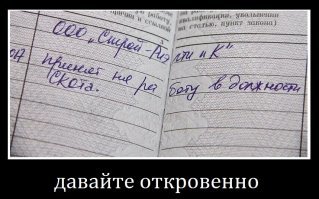 квалификации, увольнении
на статью, пункт закона)
ООО „Строй-Риэлти и К"
принят на работу в должности
СКота.
давайте откровенно